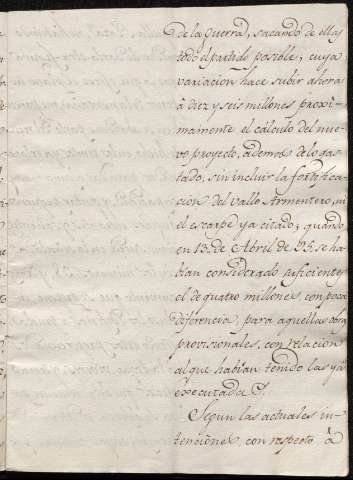 de la guerra, sacando de ello
todo el partido posible; cuya
variacion hace subir ahora
à diez y seis millones proxi-
mamente el cálculo del nue-
vo proyecto, ademas de lo gas-
tado, sin incluir la fortifica-
cion del vallo Armentero, ni
el escarpe ya citado; quando
en 13 de Abril de 95, se ha-
bian considerado suficientes
el de quatro millones, con poca
diferencia, para aquellas obras
provisionales, con relacion
al que habian tenido las ya
executadas.
Segun las actuales in-
tenciones, con respecto à